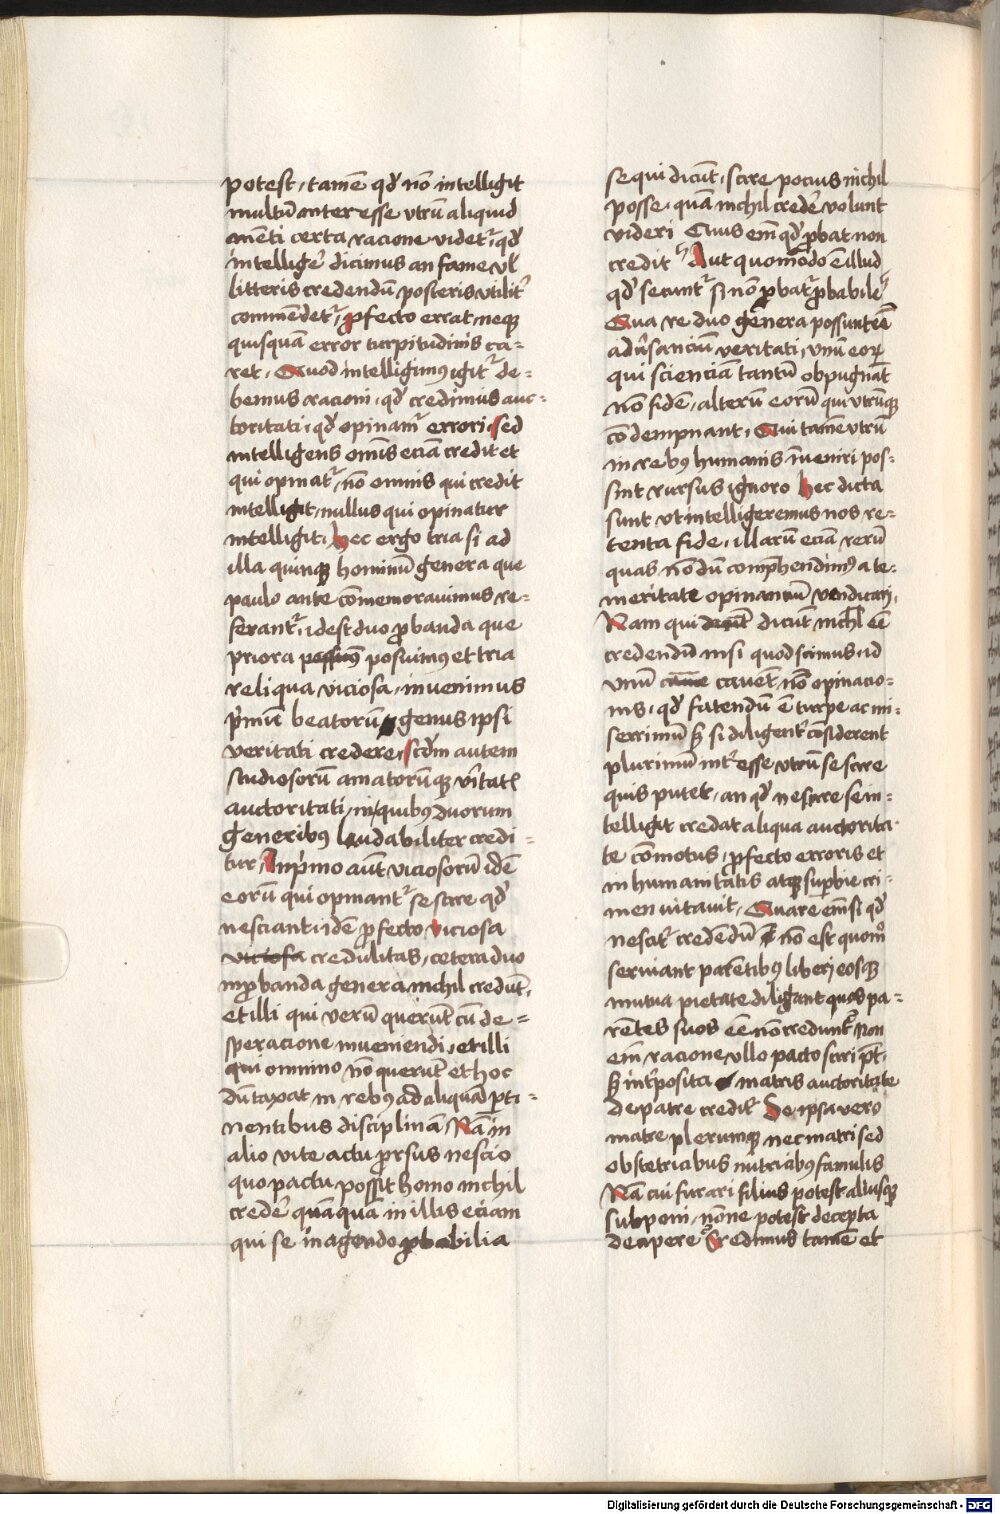 potest, tamē qd' nō intelligit
multū interesse vtrū aliquid
mēti certa racione videtr̄, qd'
intelligē dicimus an fame vl'
litteris credendū posteris vtilitr̄
commēdetr̄, pfecto errat, neqꝫ
quisquā error turpitudinis ca-
ret, Quod intelligimꝰ igitr̄ de-
bemus racioni, qd' credimus auc-
toritati, qd' opinamr̄ errori, Sed
intelligens omīs eciā credit et
qui opinatr̄, nō omnis qui credit
intelligit, nullus qui opinatur
intelligit, Hec ergo tria si ad
illa quinqꝫ hominū genera que
paulo ante cōmemorauimus re-
ferantr̄, idest duo ꝓbanda que
priora posuimꝰ et tria
reliqua viciosa, inuenimus
p̄mū beatorū genus ipsi
veritati credere, Scd'm autem
studiosorū amatorūqꝫ vītatꝭ
auctoritati, in quibꝰ duorum
generibꝰ laudabiliter credi-
tur, In p̄mo aūt viciosorū idē
eorū qui opinantr̄ se scire qd'
nesciant idē ꝓfecto viciosa
viciosa credulitas, cetera duo
inꝓbanda genera nichil credūt,
et illi qui verū querūt cū de-
speracione inueniendi, et illi
qui omnino nō querūt et hoc
dūtaxat in rebꝰ ad aliquā ꝑti-
nentibus disciplinā, Nā in
alio vite actu ꝓrsus nescio
quo pactu possit homo nichil
credē quāquā in illis eciam
qui se in agendo ꝓbabilia
sequi dicūt, scire pocius nichil
posse, quā nichil credē volunt
videri Quis em̄ qd' ꝓbat non
credit Aut quomodo ē illud
qd' secuntr̄ si nō ꝓbatr̄ ꝓbabile
Qua re duo genera possunt eē
adūsanciū veritati, vnū eoꝝ
qui scienciā tantū obpugnāt
nō fidē, alterū eorū qui vtrūqꝫ
cōdempnant, Qui tamē vtrū
in rebꝰ humanis inueniri pos-
sint rursus ignoro Hec dicta
sunt vt intelligeremus nos re-
tenta fide, illarū eciā rerū
quas nōdū comp̄hendimꝰ a te-
meritate opinanciū vendicari,
Nam qui dicūt nichl eē
credendū nisi quod scimus, id
vnū cauēt nō opinacio-
nis, qd' fatendū ē turpe ac mi-
serrimū S; si diligentr̄ cōsiderent
plurimū intr̄esse vtrū se scire
quis putet, an qd' nescire se in-
telligit credat aliqua auctorita-
te cōmotus, ꝓfecto erroris et
inhumanitatis atqꝫ supbie cri-
men vitauit, Quare em̄ si qd'
nescit̄ credendū nō est quomō
seruiant parētibꝰ liberi eosqꝫ
mutua pietate diligant quos pa-
rētes suos eē non credunt, Non
em̄ racione vllo pacto sciri pt̄,
S; intr̄posita matris auctoritate
de patre creditr̄ De ipsa vero
matre plerumqꝫ nec matri sed
obstetricibus nutricibꝰ famulis
Nā cui furari filius potest aliusqꝫ
subponi, nōne potest decepta
decipere Credimus tamē et